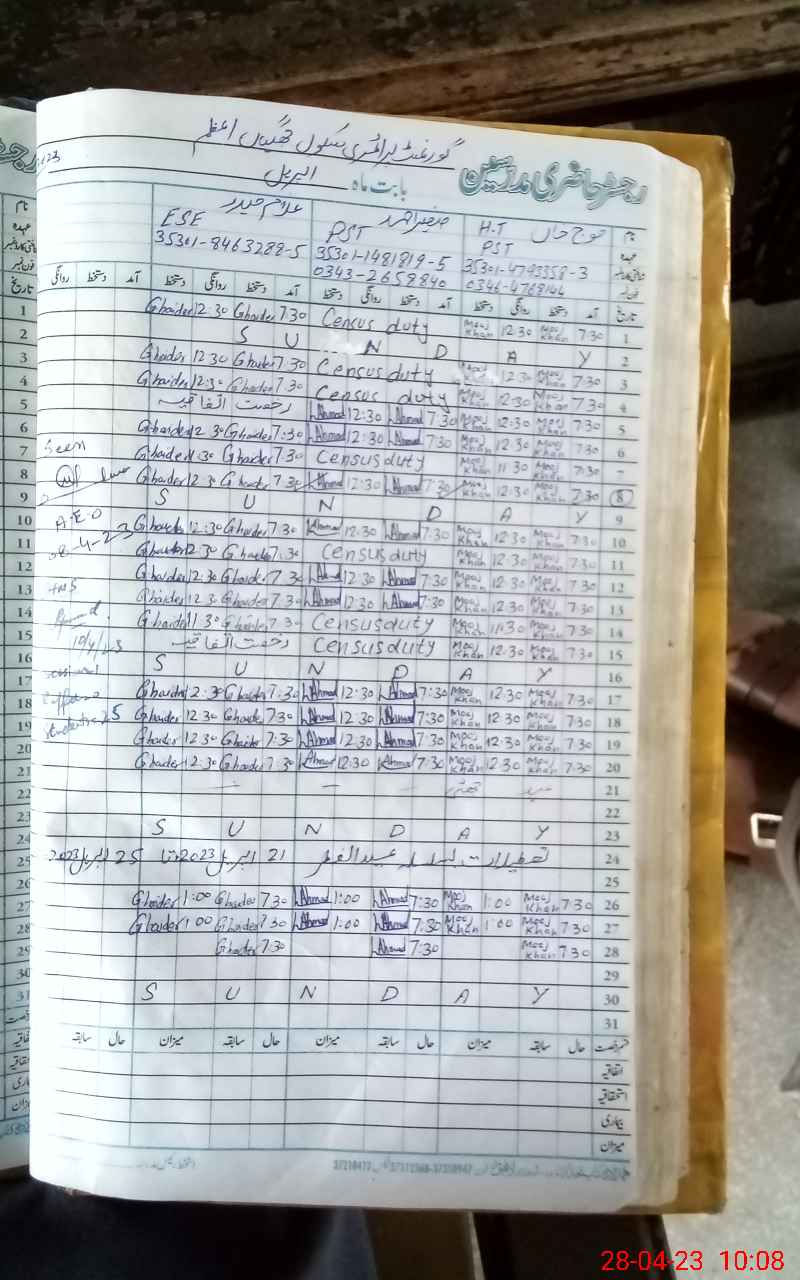 رجسٹر حاضری مدرسین
بابت ماہ اپریل
گورنمنٹ پرائمری سکول
نام موج خاں H.T صغیر احمد غلام حیدر
عہدہ PST PST ESE
35301-4793358-3 35301-1481819-5 35301-8463288-5
فون نمبر 0346-4768144 0343-2659840
تاریخ آمد دستخط روانگی دستخط آمد دستخط روانگی دستخط آمد دستخط روانگی دستخط آمد دستخط روانگی
1 7:30 Mooj Khan 12:30 Mooj Khan Census duty 7:30 Ghaider 12:30 Ghaider
2 S U N D A Y
3 7:30 Mooj Khan 12:30 Mooj Khan Census duty 7:30 Ghaider 12:30 Ghaider
4 7:30 Mooj Khan 12:30 Mooj Khan Census duty 7:30 Ghaider 12:30 Ghaider
5 7:30 Mooj Khan 12:30 Mooj Khan 7:30 Ahmad 12:30 Ahmad رخصت اتفاقیہ
6 7:30 Mooj Khan 12:30 Mooj Khan 7:30 Ahmad 12:30 Ahmad 7:30 Ghaider 12:30 Ghaider
7 7:30 Mooj Khan 11:30 Mooj Khan Census duty 7:30 Ghaider 11:30 Ghaider
8 7:30 Mooj Khan 12:30 Mooj Khan 7:30 Ahmad 12:30 Ahmad 7:30 Ghaider 12:30 Ghaider
9 S U N D A Y
10 7:30 Mooj Khan 12:30 Mooj Khan 7:30 Ahmad 12:30 Ahmad 7:30 Ghaider 12:30 Ghaider
11 7:30 Mooj Khan 12:30 Mooj Khan Census duty 7:30 Ghaider 12:30 Ghaider
12 7:30 Mooj Khan 12:30 Mooj Khan 7:30 Ahmad 12:30 Ahmad 7:30 Ghaider 12:30 Ghaider
13 7:30 Mooj Khan 12:30 Mooj Khan 7:30 Ahmad 12:30 Ahmad 7:30 Ghaider 12:30 Ghaider
14 7:30 Mooj Khan 11:30 Mooj Khan Census duty 7:30 Ghaider 11:30 Ghaider
15 7:30 Mooj Khan 12:30 Mooj Khan Census duty رخصت اتفاقیہ
16 S U N D A Y
17 7:30 Mooj Khan 12:30 Mooj Khan 7:30 Ahmad 12:30 Ahmad 7:30 Ghaider 12:30 Ghaider
18 7:30 Mooj Khan 12:30 Mooj Khan 7:30 Ahmad 12:30 Ahmad 7:30 Ghaider 12:30 Ghaider
19 7:30 Mooj Khan 12:30 Mooj Khan 7:30 Ahmad 12:30 Ahmad 7:30 Ghaider 12:30 Ghaider
20 7:30 Mooj Khan 12:30 Mooj Khan 7:30 Ahmad 12:30 Ahmad 7:30 Ghaider 12:30 Ghaider
21
22
23 S U N D A Y
24 تعطیلات بسلسلہ عیدالفطر 21 اپریل 2023 تا 25 اپریل 2023
25
26 7:30 Mooj Khan 1:00 Mooj Khan 7:30 Ahmad 1:00 Ahmad 7:30 Ghaider 1:00 Ghaider
27 7:30 Mooj Khan 1:00 Mooj Khan 7:30 Ahmad 1:00 Ahmad 7:30 Ghaider 1:00 Ghaider
28 7:30 Mooj Khan 7:30 Ahmad 7:30 Ghaider
29
30 S U N D A Y
31
حال سابقہ میزان حال سابقہ میزان حال سابقہ میزان حال سابقہ
اتفاقیہ
استحقاقیہ
بیماری
میزان
Seen
A.E.O
08-4-23
28-04-23 10:08